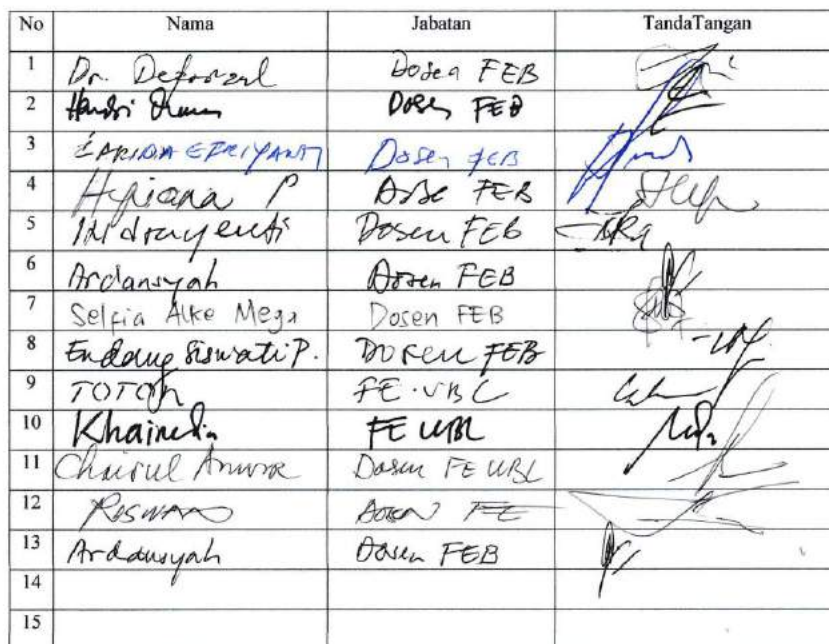 No Nama Jabatan TandaTangan
1 Dr. Defrizal Dosen FEB
2 Handri Dosen FEB
3 Dosen FEB
4 Hepiana P FEB
5 Indrayenti Dosen FEB
6 Ardansyah Dosen FEB
7 Selfia Alke Mega Dosen FEB
8 Endang Siswati P. Dosen FEB
9 TOTOH FE-UBL
10 Khairudin FE UBL
11 Chairul Anwar Dosen FE UBL
12 RISWAN Dosen FE
13 Ardansyah Dosen FEB
14
15